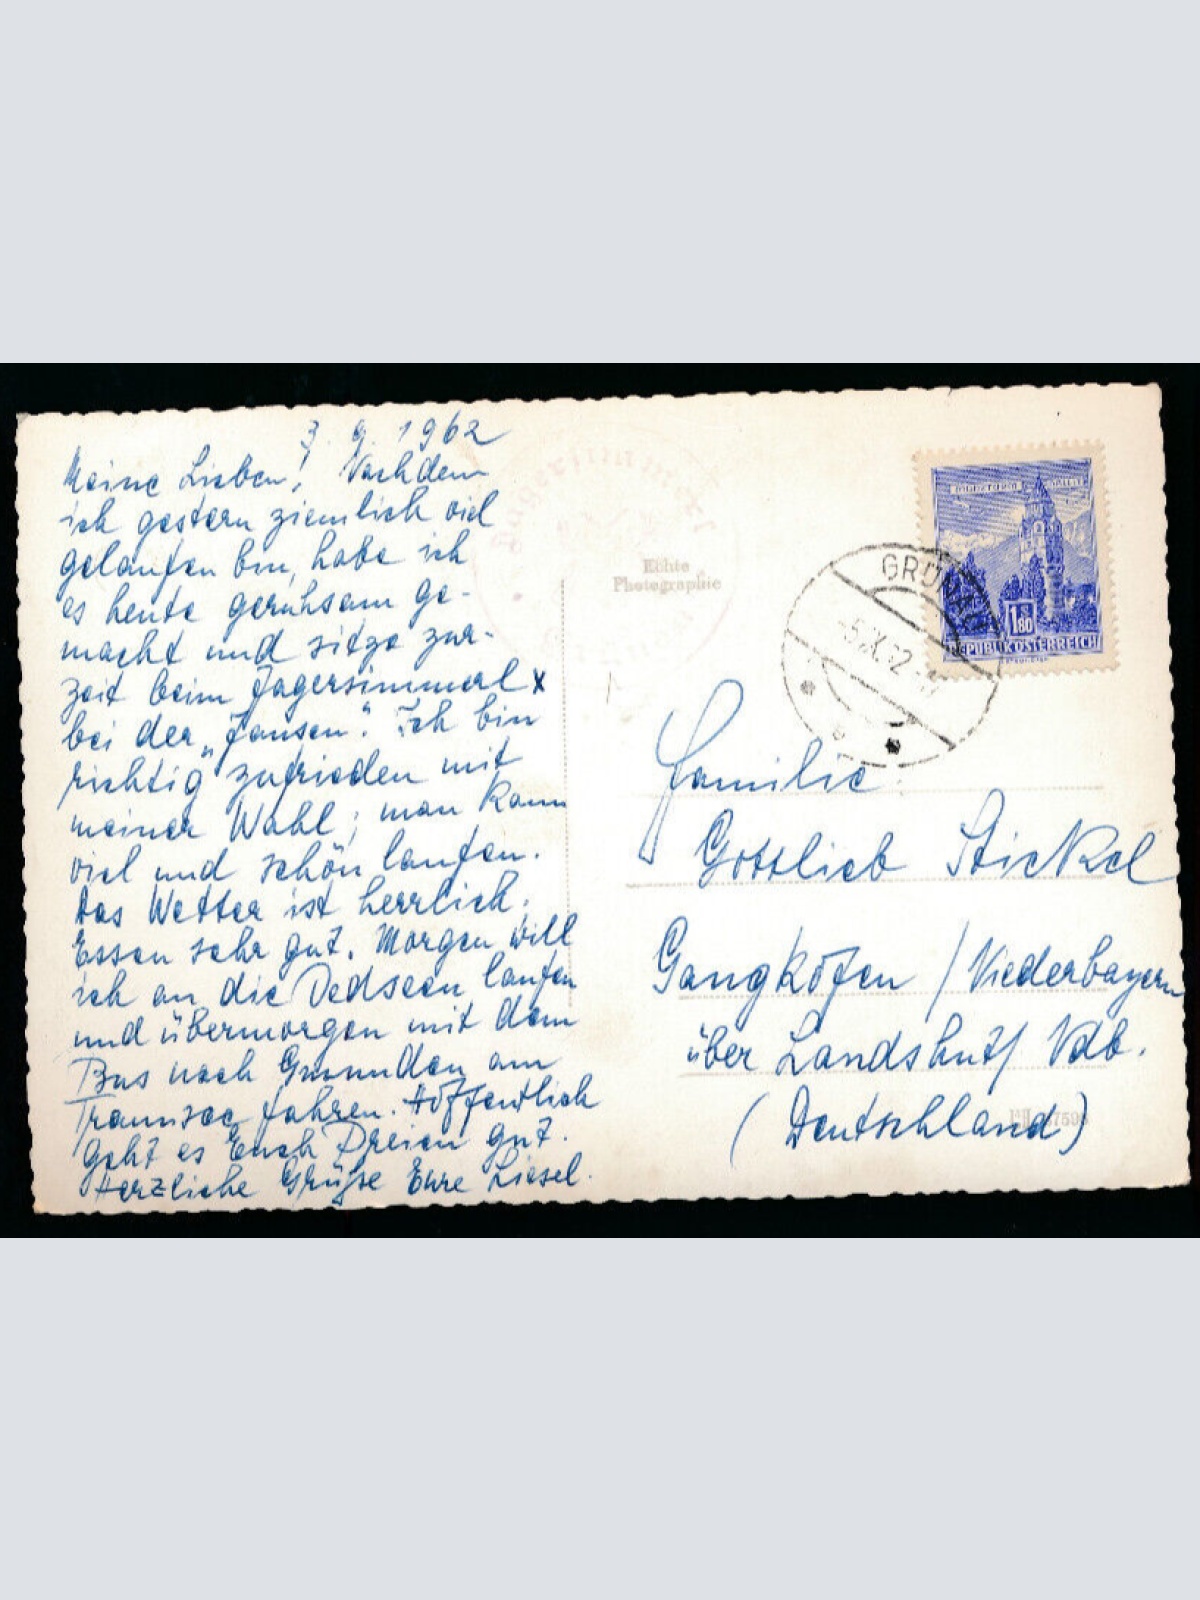 3. 9. 1962
Meine Lieben! Nachdem
ich gestern ziemlich viel
gelaufen bin, habe ich
es heute geruhsam ge-
macht und sitze zur-
zeit beim Jagersimmerl x
bei der „Jausen“. Ich bin
richtig zufrieden mit
meiner Wahl; man kann
viel und schön laufen.
Das Wetter ist herrlich.
Essen sehr gut. Morgen will
ich an die Ödseen laufen
und übermorgen mit dem
Bus nach Gmunden am
Traunsee fahren. Hoffentlich
geht es Euch Dreien gut.
Herzliche Grüße Eure Liesel.
Jagersimmerl
Echte
Photographie
GRÜNAU
-5.IX.62
1.80
REPUBLIK ÖSTERREICH
Familie
Gottlieb Stickel
Gangkofen / Niederbayern
über Landshut / Ndb.
(Deutschland)